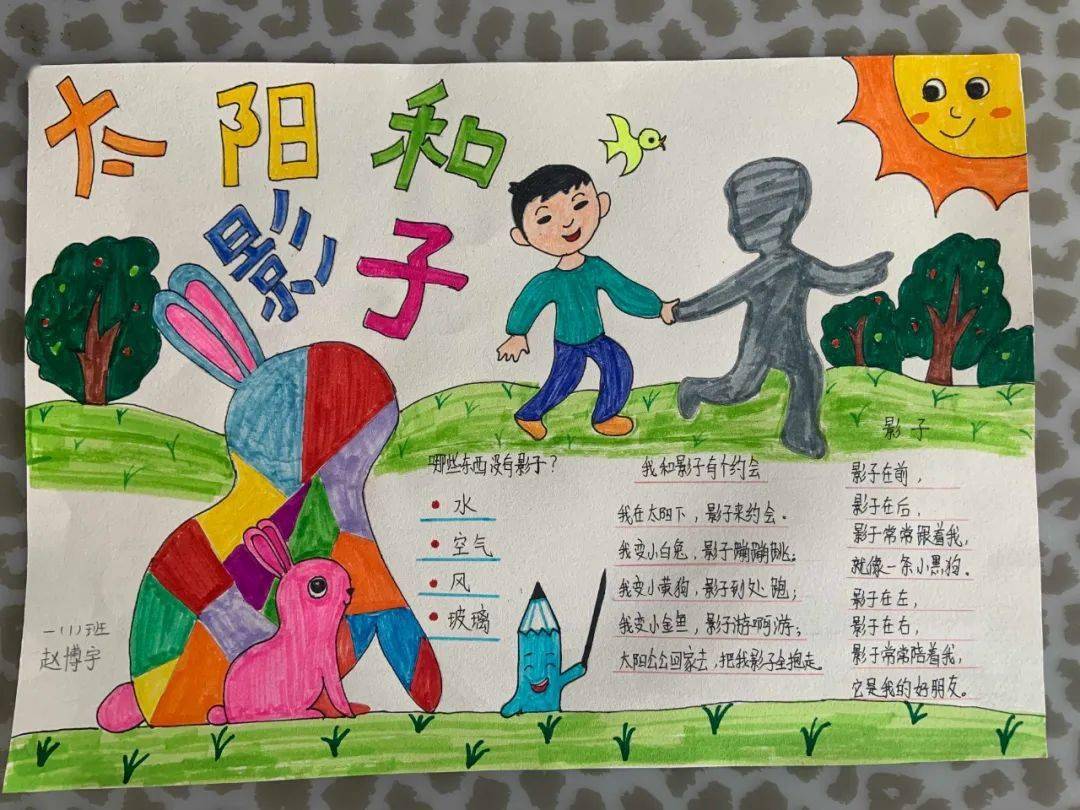 太阳和
影子
哪些东西没有影子？
水
空气
风
玻璃
我和影子有个约会
我在太阳下，影子来约会。
我变小白兔，影子蹦蹦跳。
我变小黄狗，影子到处跑；
我变小金鱼，影子游啊游；
太阳公公回家去，把我影子全抱走
影子
影子在前，
影子在后，
影子常常跟着我，
就像一条小黑狗。
影子在左，
影子在右，
影子常常陪着我，
它是我的好朋友。
一(1)班
赵博宇